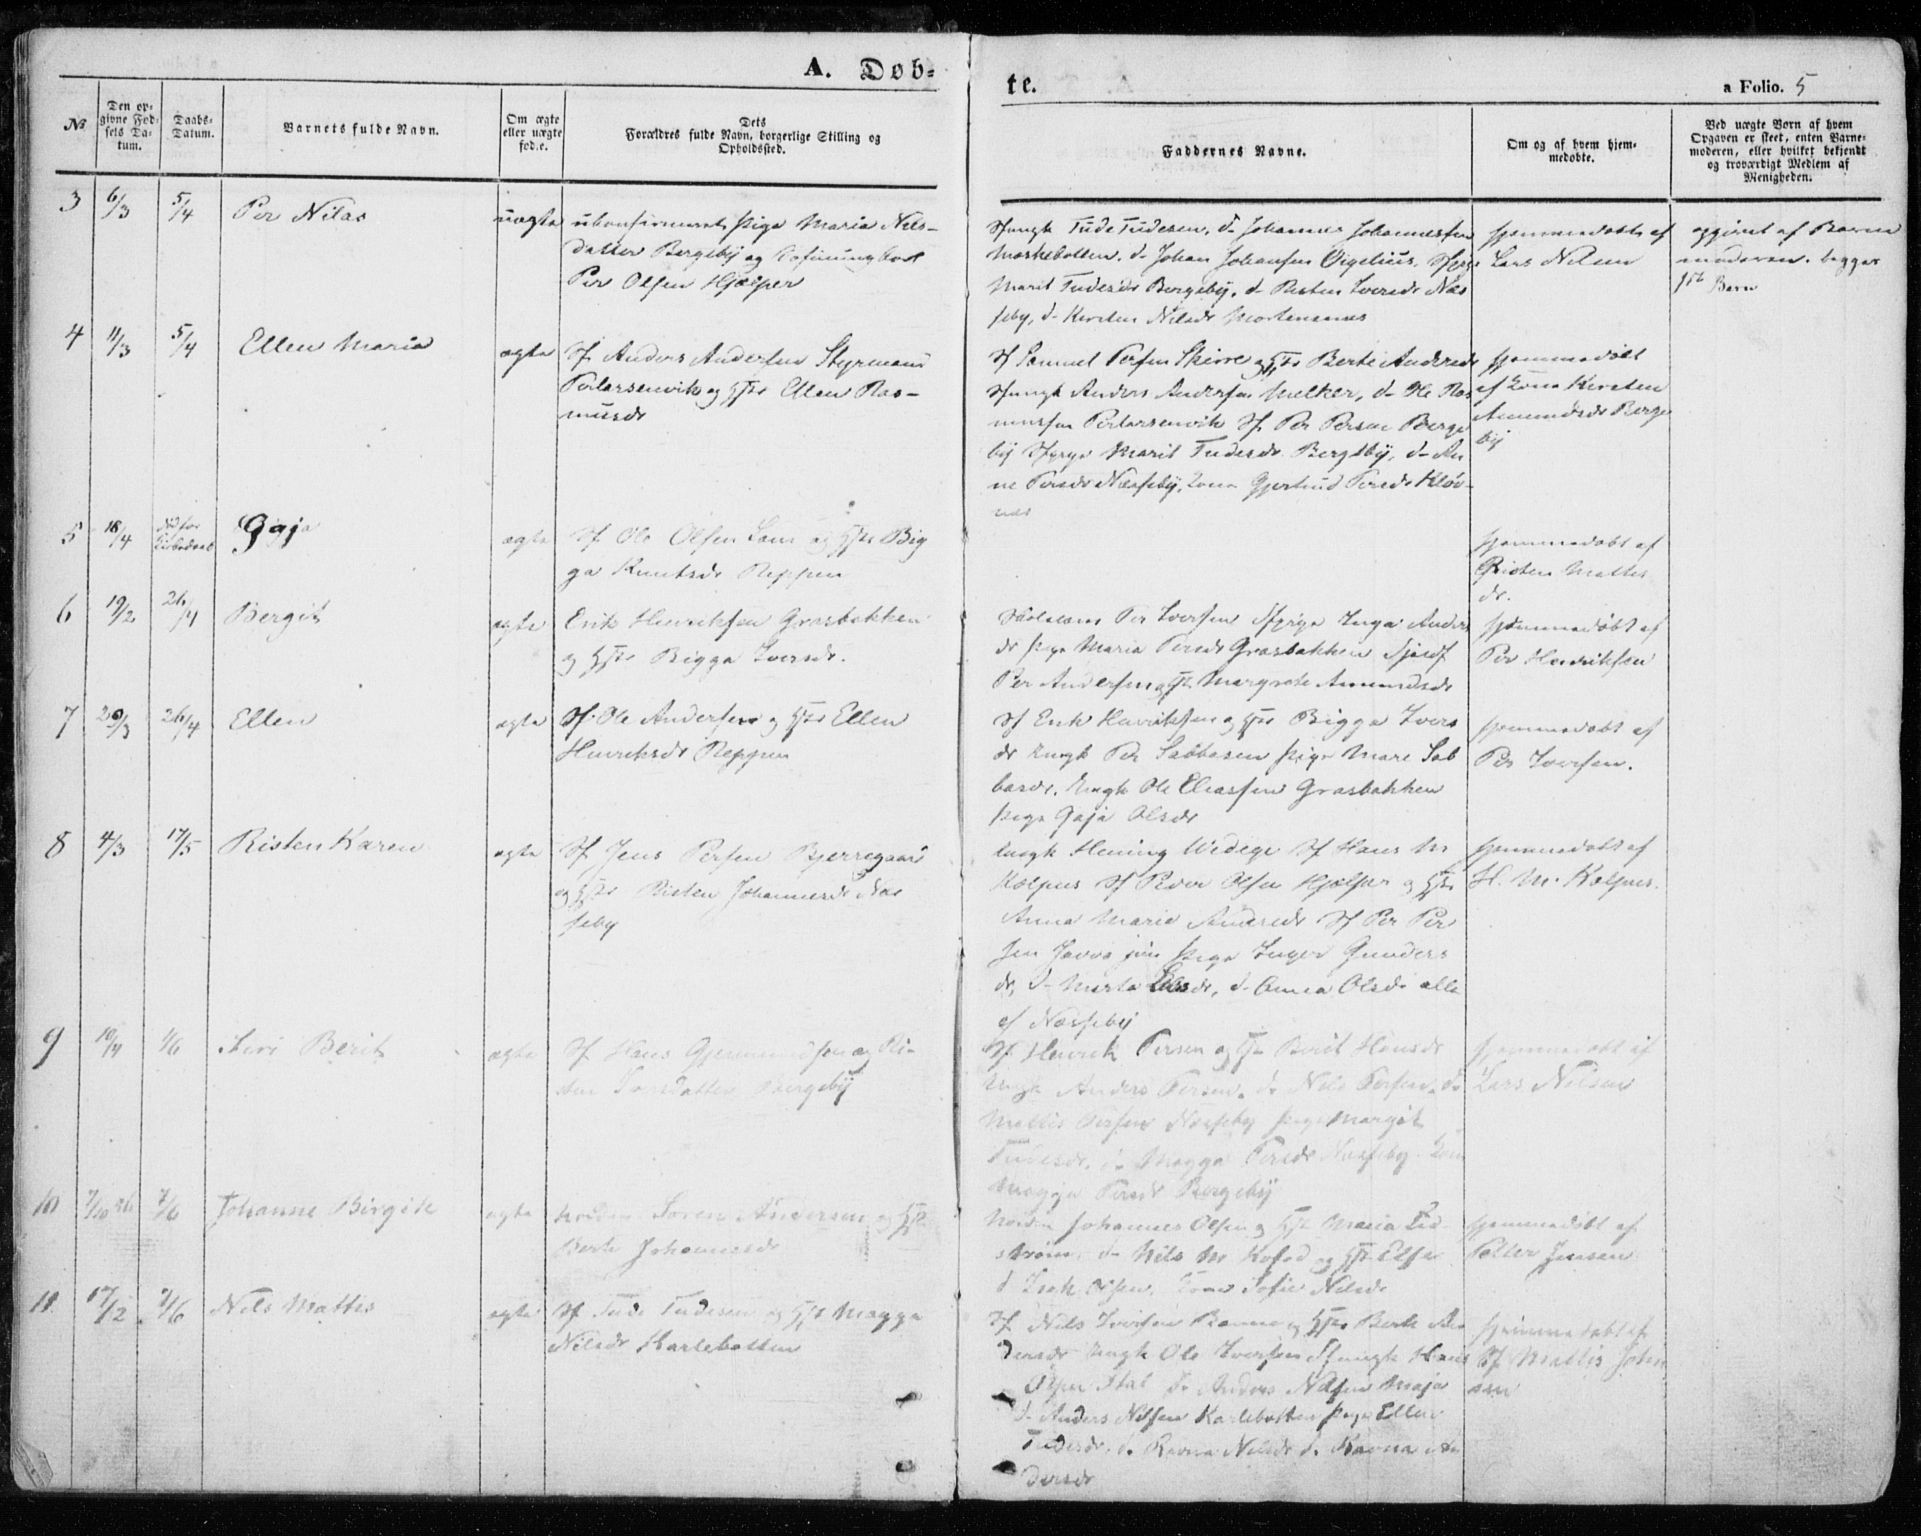 A. Døb-
te.
a Folio. 5
No
Den op-
givne Fød-
sels Da-
tum.
Daabs-
Datum.
Barnets fulde Navn.
Om ægte
eller uægte
fød.e.
Dets
Forældres fulde Navn, borgerlige Stilling og
Opholdssted.
Faddernes Navne.
Om og af hvem hjem-
medøbte.
Ved uægte Børn af hvem
Opgaven er skeet, enten Barne-
moderen, eller hvilket bekjendt
og troværdigt Medlem af
Menigheden.
3 6/3 5/4 Per Nilas uægte ukonfirmeret Pige Maria Nils-
datter Bergeby og
Per Olsen Hjelper
Ungk Tude Tudesen, d. Johannes Johannessen
Maskebotten, d Johan Johansen
Marit Tudesdr Bergeby, d Risten Iversdr Næs
seby, d. Kirsten Nilsdr Mortensnæs
hjemmedøbt af
Lars Nilsen
opgivet af Barne
moderen. begges
1ste Barn
4 11/3 5/4 Ellen Maria ægte Sf. Anders Andersen Styrmand
Perlarsenvik og Hstr Ellen Ras-
musdr
Sf Samuel Persen Skirre og Hstr Berte Andersdr
Ungk Anders Andersen Melker, d. Ole Ras
mussen Perlarsenvik Sf. Per Persen Berge
by Marit Tudesdr. Bergeby, d. An
ne Persdr Næsseby, Kona Gjertrud Persdr Kløv-
næs
hjemmedøbt
af Kona Kirsten
Amundsdr Berge
by
5 18/4 Gaja ægte Sf. Ole Olsen og Hstr Big
ga Knutsdr Reppen
hjemmedøbt af
Risten Mattis
dr.
6 19/2 26/4 Bergit ægte Erik Henriksen Grasbakken
og Hstr Bigga Iversdr.
Per Iversen Inga Anders
dr Pige Maria Persdr Grasbakken
Per Andersen og Hstr Margrete Amundsdr
hjemmedøbt af
Per Hendriksen
7 20/3 26/4 Ellen ægte Sf. Ole Andersen og Hstr Ellen
Henriksdr Reppen
Sf Erik Henriksen og Hstr Bigga Ivers
dr Ungk Per Sabbasen Pige Mare Sab
basdr. Ungk Ole Eliassen Grasbakken
Pige Gaja Olsdr
hjemmedøbt af
Per Iversen.
8 4/3 17/5 Risten Karen ægte Sf Jens Persen Bjerregaard
og Hstr Risten Johannesdr Næs
seby
Ungk Hening Wedege Sf Hans M
Kolpus Sf Peder Olsen Hjelper og Hstr
Anna Marie Andersdr Sf Per Per
sen Javva jun Pige Inger Gunders
dr, d. Marta dr, d. Anna Olsdr alle
af Næsseby
hjemmedøbt af
H. M. Kolpus.
9 10/4 1/6 Siri Berit ægte Sf Hans Gjermundsen og Ri-
sten Larsdatter Bergeby
Sf. Henrik Persen og Hstr Berit Hansdr
Ungk Anders Persen, do Nils Persen, do
Mattis Persen Næsseby Pige Margit
Tudesdr, do Magga Persdr Næsseby Kona
Magga Persdr Bergeby
hjemmedøbt af
Lars Nilsen
10 7/10 56 7/6 Johanne Birgite ægte Søren Andersen og Hstr
Berte Johannesdr
Johannes Olsen og Hstr Maria Lid
strøm, do Nils M Kofod og Hstr Elsa
d. Isak Olsen, Kona Sofie Nilsdr
hjemmedøbt af
Petter Jensen
11 17/12 7/6 Nils Mattis ægte Sf Tude Tudesen og Hstr Magga
Nilsdr Karlebotten
Sf Nils Iversen Banne og Hstr Berte An
dersdr Ungk Ole Iversen Ungk Hans
do Anders Nilsen Maja
d. Anders Nilsen Karlebotten Pige Ellen
Tudesdr, do Ravna Nilsdr do Ravna An
dersdr
hjemmedøbt af
Sf Mattis Johan
sen